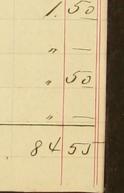 1. 50
" —
" 50
" —
84 55